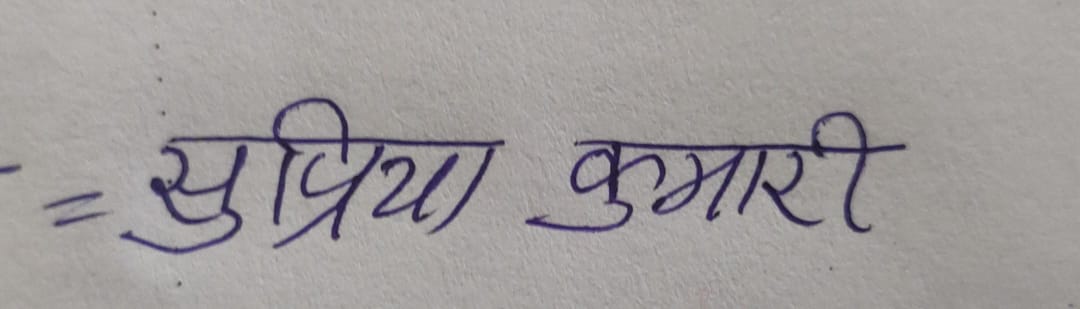 = सुप्रिया कुमारी